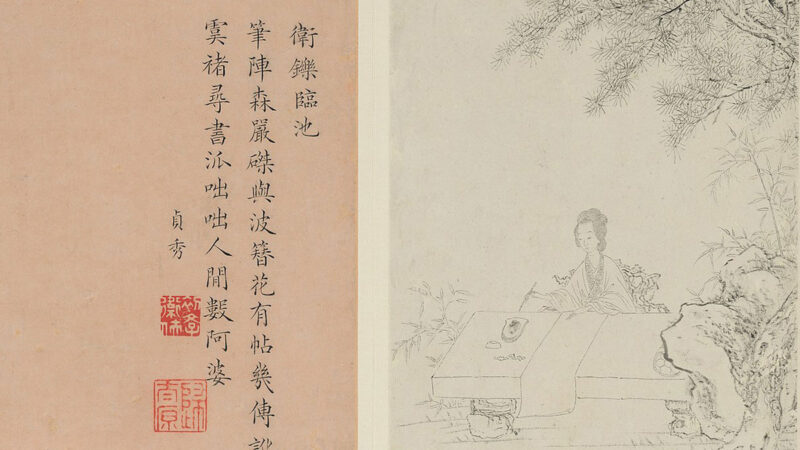 衛鑠臨池
筆陣森嚴磔與波簪花有帖幾傳
虞褚尋書泒咄咄人間數阿婆
貞秀